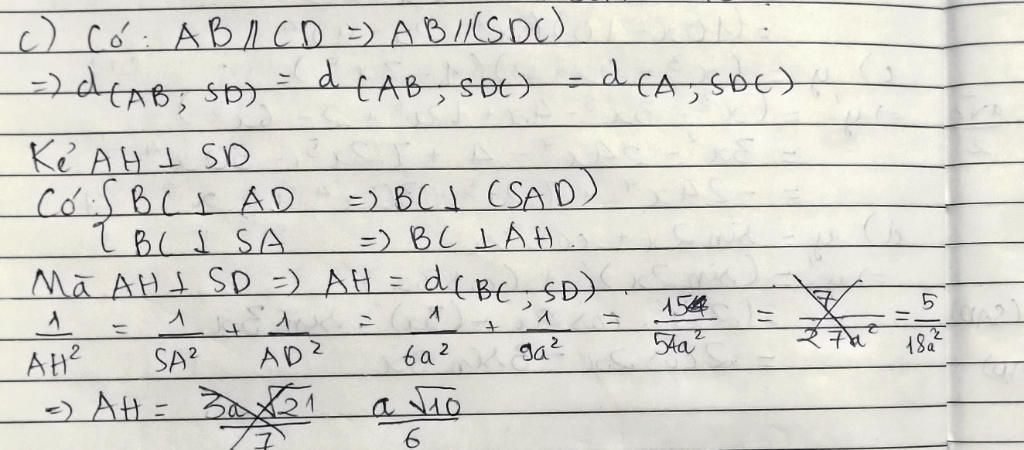 c) Có: AB // CD => AB // (SDC)
=> d(AB; SD) = d(AB; SDC) = d(A; SDC)
Kẻ AH ⊥ SD
Có: { BC ⊥ AD => BC ⊥ (SAD)
{ BC ⊥ SA => BC ⊥ AH.
Mã AH ⊥ SD => AH = d(BC; SD).
1/AH² = 1/SA² + 1/AD² = 1/6a² + 1/9a² = 15/54a² = 7/27a² = 5/18a²
=> AH = 3a√21/7 a√10/6